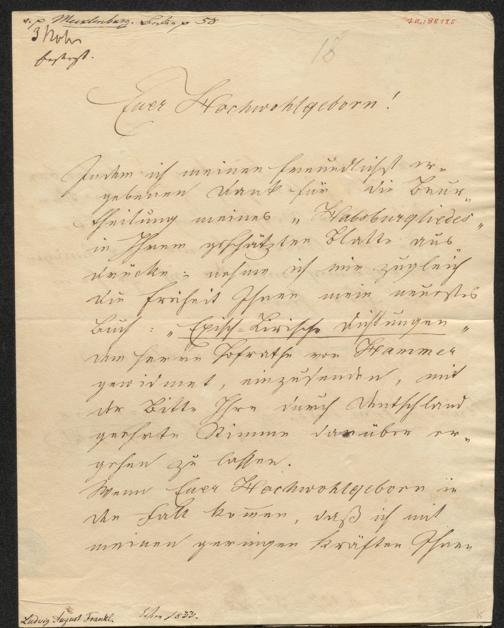 Mecklenburg.
3 Nov
18
Euer Hochwohlgeborn!
Indem ich meinen freundlichst er-
gebenen Dank für die Beur-
theilung meines „Habsburgliedes“
in Ihrem geschätzten Blatte aus-
drücke: nehme ich mir zugleich
die Freiheit Ihnen mein neuestes
Buch: „Episch-Lirische Dichtungen“
dem Herrn Hofrathe von Hammer
gewidmet, einzusenden, mit
der Bitte Ihre durch Deutschland
geehrte Stimme darüber er-
gehen zu lassen.
Wenn Euer Hochwohlgeborn in
den Fall kommen, daß ich mit
meinen geringen Kräften Ihnen
Ludwig August Frankl. 1833.